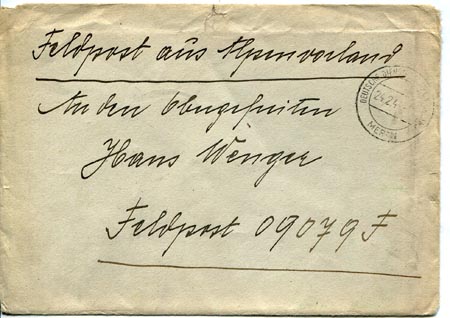 Feldpost aus Alpenvorland
An den Obergefreiten
Hans Wenger
Feldpost 09079 F
DEUTSCHE
24.2.4
MERAN